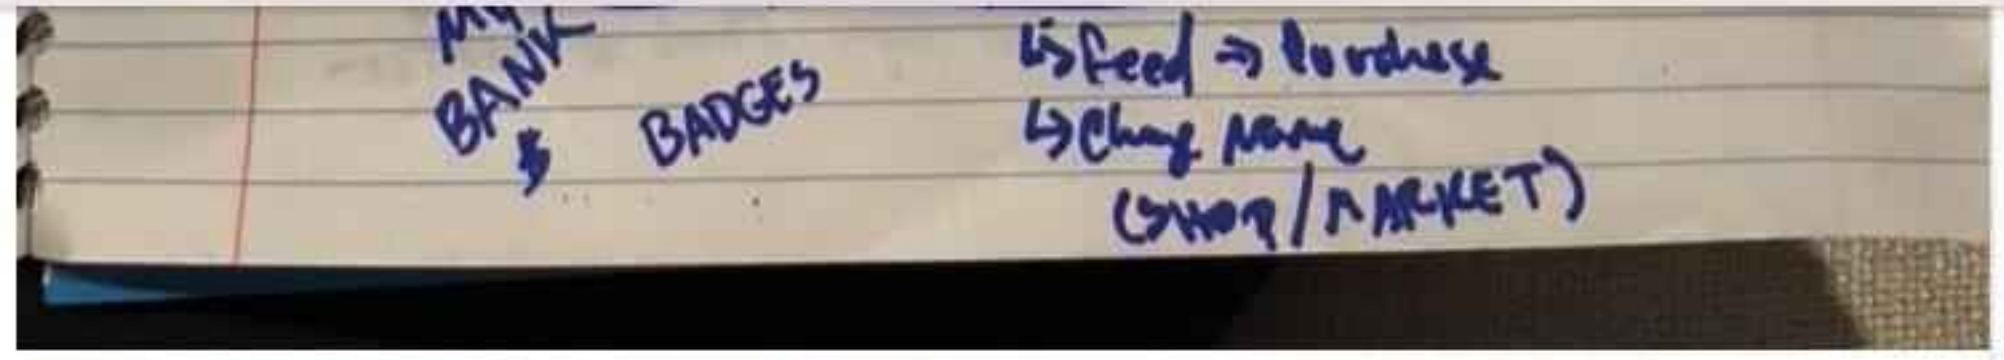 My
BANK
$
BADGES
↳ feed ⇒ Purchase
↳ Chang Name
(SHOP/MARKET)